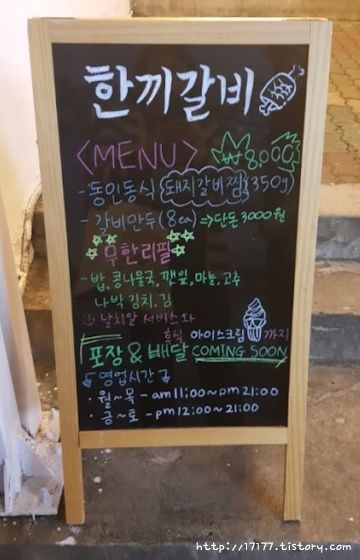 한끼갈비
<MENU> ₩8,000
- 동인동식 돼지갈비찜(350g)
- 갈비만두(8ea) ⇒단돈 3000원
무한리필
- 밥, 콩나물국, 깻잎, 마늘, 고추
나박김치, 김
날치알 서비스와
후식 아이스크림 까지
포장 & 배달 COMING SOON
영업시간
· 월~목 - am11:00~pm21:00
· 금~토 - pm12:00~21:00
http://17177.tistory.com